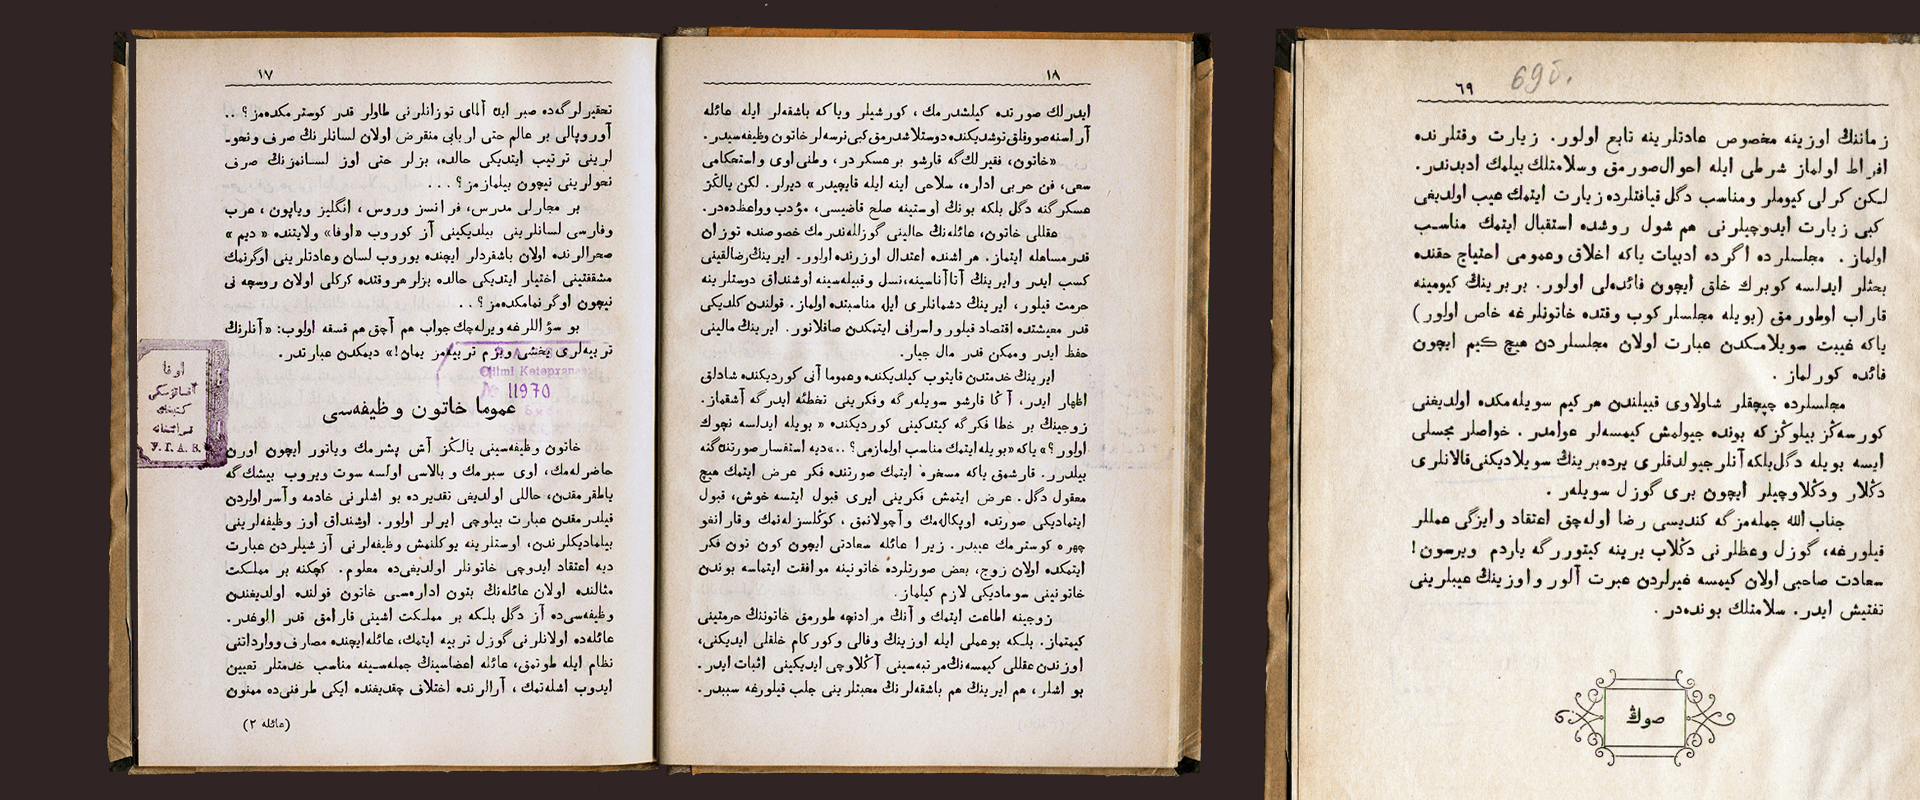 ١٧
تحقيرلرگه‌ده صبر ايه آلماى توزانلرنى طاولر قدر كوسترمكده‌مز؟ ..
آوروپالى بر عالم حتى اربابى منقرض اولان لسانلرنڭ صرف ونحو-
لرينى ترتيب ايتديكى حالده، بزلر حتى اوز لسانمزنڭ صرف
نحولرينى نيچون بيلمازمز؟ ...
بر مجارلى مدرس، فرانسز وروس، انگليز وياپون، عرب
وفارسى لسانلرينى بيلديكينى آز كوروب «اوفا» ولايتنده «ديم»
صحرالرنده اولان باشقردلر ايچنده يوروب لسان وعادتلرينى اوگرنمك
مشقتينى اختيار ايتديكى حالده بزلر هروقتده كركلى اولان روسچه نى
نيچون اوگرنمامكده‌مز؟ ..
بو سؤاللرغه ويرله‌چك جواب هم آچق هم قسقه اولوب: «آنلرنڭ
تربيه‌لرى يخشى وبزم تربيه‌مز يمان!» ديمكدن عبارتدر.
Ƣilmi Kətepxanasь
№ 11970
اوفا
كتبخانه
قرائتخانه
У. Г. А. В.
عموما خاتون وظيفه‌سى
خاتون وظيفه‌سينى يالڭز آش پشرمك وياتور ايچون اورن
حاضرله‌مك، اوى سپرمك و بالاسى اولسه سوت ويروب بيشك گه
ياطقرمقدن، حاللى اولديغى تقديرده بو اشلرنى خادمه وآسراولردن
قيلدرمقدن عبارت بيلوچى ايرلر اولور. اوشنداق اوز وظيفه‌لرينى
بيلماديكلرندن، اوستلرينه يوكلنمش وظيفه‌لرنى آز شيلردن عبارت
ديه اعتقاد ايدوچى خاتونلر اولديغى‌ده معلوم. كچكنه بر مملكت
مثالنده اولان عائله‌نڭ بتون اداره‌سى خاتون قولنده اولديغندن
وظيفه‌سى‌ده آز دگل بلكه بر مملكت اشينى قارامق قدر الوغدر.
عائله‌ده اولانلرنى گوزل تربيه ايتمك، عائله‌ايچنده مصارف ووارداتنى
نظام ايله طوتمق، عائله اعضاسينڭ جمله‌سينه مناسب خدمتلر تعيين
ايدوب اشله‌تمك، آرالرنده اختلاف چقديغنده ايكى طرفنى‌ده ممنون
(عائله ٢)
١٨
ايدرلك صورتده كيلشدرمك، كورشيلر وياكه باشقه‌لر ايله عائله
آراسنه صووقلق توشديكنده دوستلاشدرمق كبى نرسه‌لر خاتون وظيفه‌سيدر.
«خاتون، فقيرلك‌گه قارشو برعسكردر، وطنى اوى واستحكامى
سعى، فن حربى اداره، سلاحى اينه ايله قايچيدر» ديرلر. لكن يالڭز
عسكر گنه دگل بلكه بونڭ اوستينه صلح قاضيسى، مؤدب وواعظ‌ده‌در.
عقللى خاتون، عائله‌نڭ حالينى گوزللندرمك خصوصنده توزان
قدر مساهله ايتماز. هر اشنده اعتدال اوزرنده اولور. ايرينڭ رضالقينى
كسب ايدر وايرينڭ آتا آناسينه، نسل وقبيله‌سينه اوشنداق دوستلرينه
حرمت قيلور، ايرينڭ دشمانلرى ايله مناسبتده اولماز. قولندن كلديكى
قدر معيشتده اقتصاد قيلور واسراف ايتمكدن صاقلانور. ايرينڭ مالينى
حفظ ايدر وممكن قدر مال جيار.
ايرينڭ خدمتدن قايتوب كيلديكنده وعموما آنى كورديكنده شادلق
اظهار ايدر، آڭا قارشو سويله‌رگه وفكرينى تخطئه ايدرگه آشقماز.
زوجينڭ بر خطا فكرگه كيتدكينى كورديكنده «بويله ايدلسه نچوك
اولور؟» ياكه «بويله‌ايتمك مناسب اولمازمى؟ ..» ديه استفسار صورتنده‌گنه
بيلدرر. قارشمق ياكه مسخره ايتمك صورتنده فكر عرض ايتمك هيچ
معقول دگل. عرض ايتمش فكرينى ايرى قبول ايتسه خوش، قبول
ايتماديكى صورتده اوپكاله‌مك وآچولانمق، كوڭلسزله‌نمك وقارانغو
چهره كوسترمك عيبدر. زيرا عائله سعادتى ايچون كون تون فكر
ايتمكده اولان زوج، بعض صورتلرده خاتونينه موافقت ايتماسه بوندن
خاتونينى سوماديكى لازم كيلماز.
زوجينه اطاعت ايتمك و آنڭ مرادنچه طورمق خاتوننڭ حرمتينى
كيمتماز. بلكه بوعملى ايله اوزينڭ وفالى وكوركام خلقلى ايديكنى،
اوزندن عقللى كيمسه‌نڭ مرتبه‌سينى آڭلاوچى ايديكينى اثبات ايدر.
بو اشلر، هم ايرينڭ هم باشقه‌لرنڭ محبتلرينى جلب قيلورغه سببدر.
٦٩
69б.
زماننڭ اوزينه مخصوص عادتلرينه تابع اولور. زيارت وقتلرنده
افراط اولماز شرطى ايله احوال‌صورمق وسلامتلك‌بيلمك ادبدندر.
لكن كرلى كيوملر ومناسب دگل قيافتلرده زيارت ايتمك عيب اولديغى
كبى زيارت ايدوچيلرنى هم شول روشده استقبال ايتمك مناسب
اولماز. مجلسلرده اگرده ادبيات ياكه اخلاق وعمومى احتياج حقنده
بحثلر ايدلسه كوبرك خلق ايچون فائده‌لى اولور. بربرينڭ كيومينه
قاراب اوطورمق (بويله مجلسلر كوب وقتده خاتونلرغه خاص اولور)
ياكه غيبت سويلامكدن عبارت اولان مجلسلردن هيچ كيم ايچون
فائده كورلماز.
مجلسلرده چپچقلر شاولاوى قبيلندن هركيم سويله‌مكده اولديغنى
كورسه‌ڭز بيلوڭزكه بونده جيولمش كيمسه‌لر عوامدر. خواصلر مجلسى
ايسه بويله دگل‌بلكه آنلر جيولدقلرى يرده‌برينڭ سويلاديكنى‌قالانلرى
دڭلار ودڭلاوچيلر ايچون برى گوزل سويلەر.
جناب الله جمله‌مزگه كنديسى رضا اوله‌چق اعتقاد وايزگى عمللر
قيلورغه، گوزل وعظلرنى دڭلاب يرينه كيتوررگه ياردم ويرسون!
سعادت صاحبى اولان كيمسه غيرلردن عبرت آلور واوزينڭ عيبلرينى
تفتيش ايدر. سلامتلك بونده‌در.
صوڭ